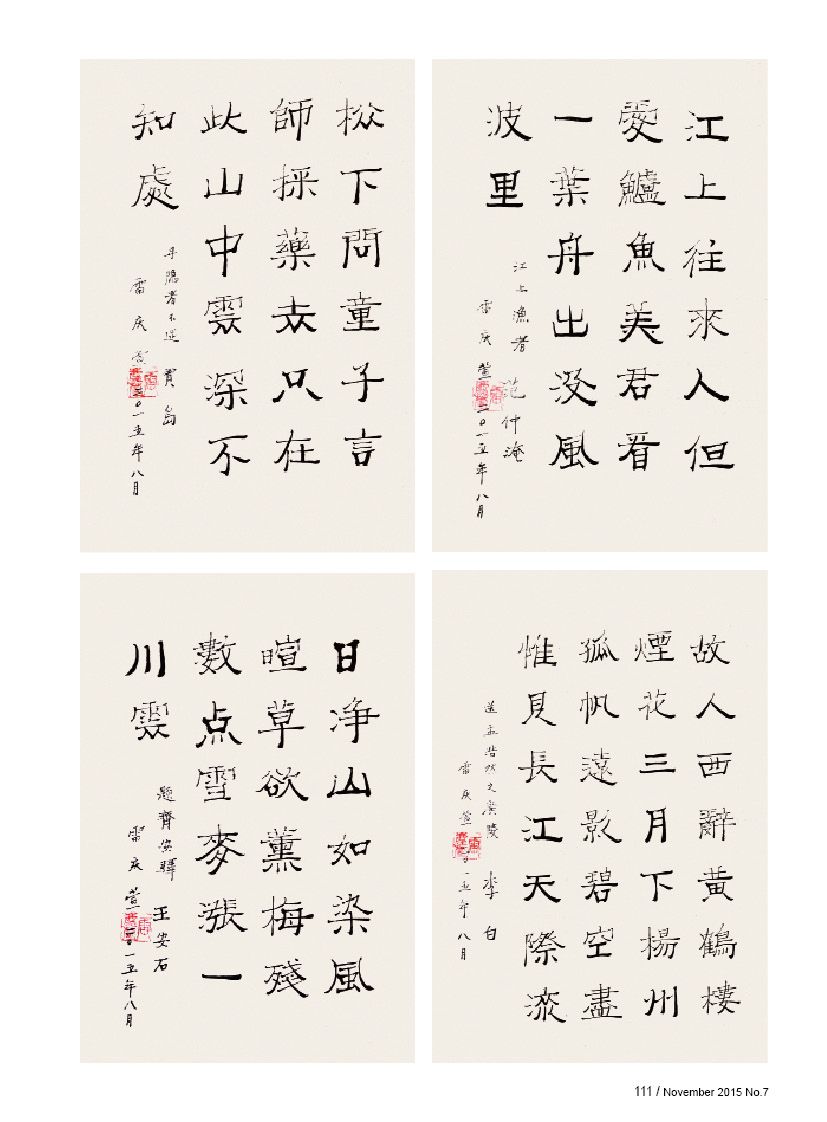 松下問童子言
師採藥去只在
此山中雲深不
知處
寻隐者不遇 賈島
雷庆萱 二0一五年八月
江上往來人但
愛鱸魚美君看
一葉舟出没風
波里
江上漁者 范仲淹
雷庆萱 二0一五年八月
日净山如染風
暄草欲薰梅殘
數点雪麥漲一
川雲
题齊安驛 王安石
雷庆萱 二0一五年八月
故人西辭黄鶴樓
煙花三月下楊州
孤帆遠影碧空盡
惟見長江天際流
送孟浩然之廣陵 李白
雷庆萱 二0一五年八月
111 / November 2015 No.7